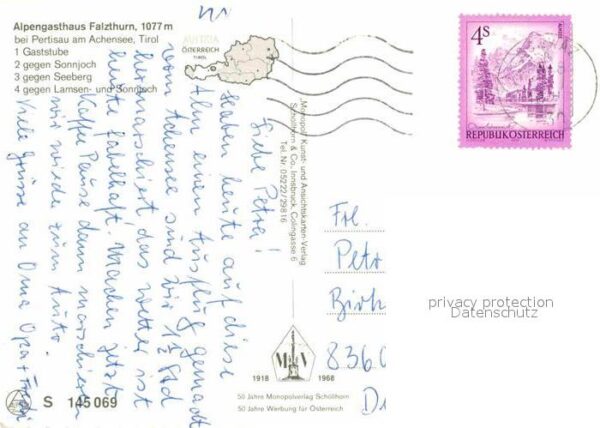 Alpengasthaus Falzthurn, 1077 m
bei Pertisau am Achensee, Tirol
1 Gaststube
2 gegen Sonnjoch
3 gegen Seeberg
4 gegen Lamsen- und Sonnjoch
AUSTRIA
ÖSTERREICH
TIROL
Liebe Petra!
Haben heute auf diese
Alm einen Ausflug gemacht
vom Achensee sind wir 1½ Std
hermarschiert das Wetter ist
heute fabelhaft. Machen jetzt
Kaffee Pause dann marschieren
wir wieder zum Auto.
Viele Grüsse an Oma Opa +
Monopol Kunst- und Ansichtskarten-Verlag
Schöllhorn & Co., Innsbruck, Colingasse 6
Tel. Nr. 05222/25816
4S
REPUBLIK ÖSTERREICH
Frl.
Petr
Birk
8360
D
privacy protection
Datenschutz
M V
1918 1968
50 Jahre Monopolverlag Schöllhorn
50 Jahre Werbung für Österreich
S 145 069